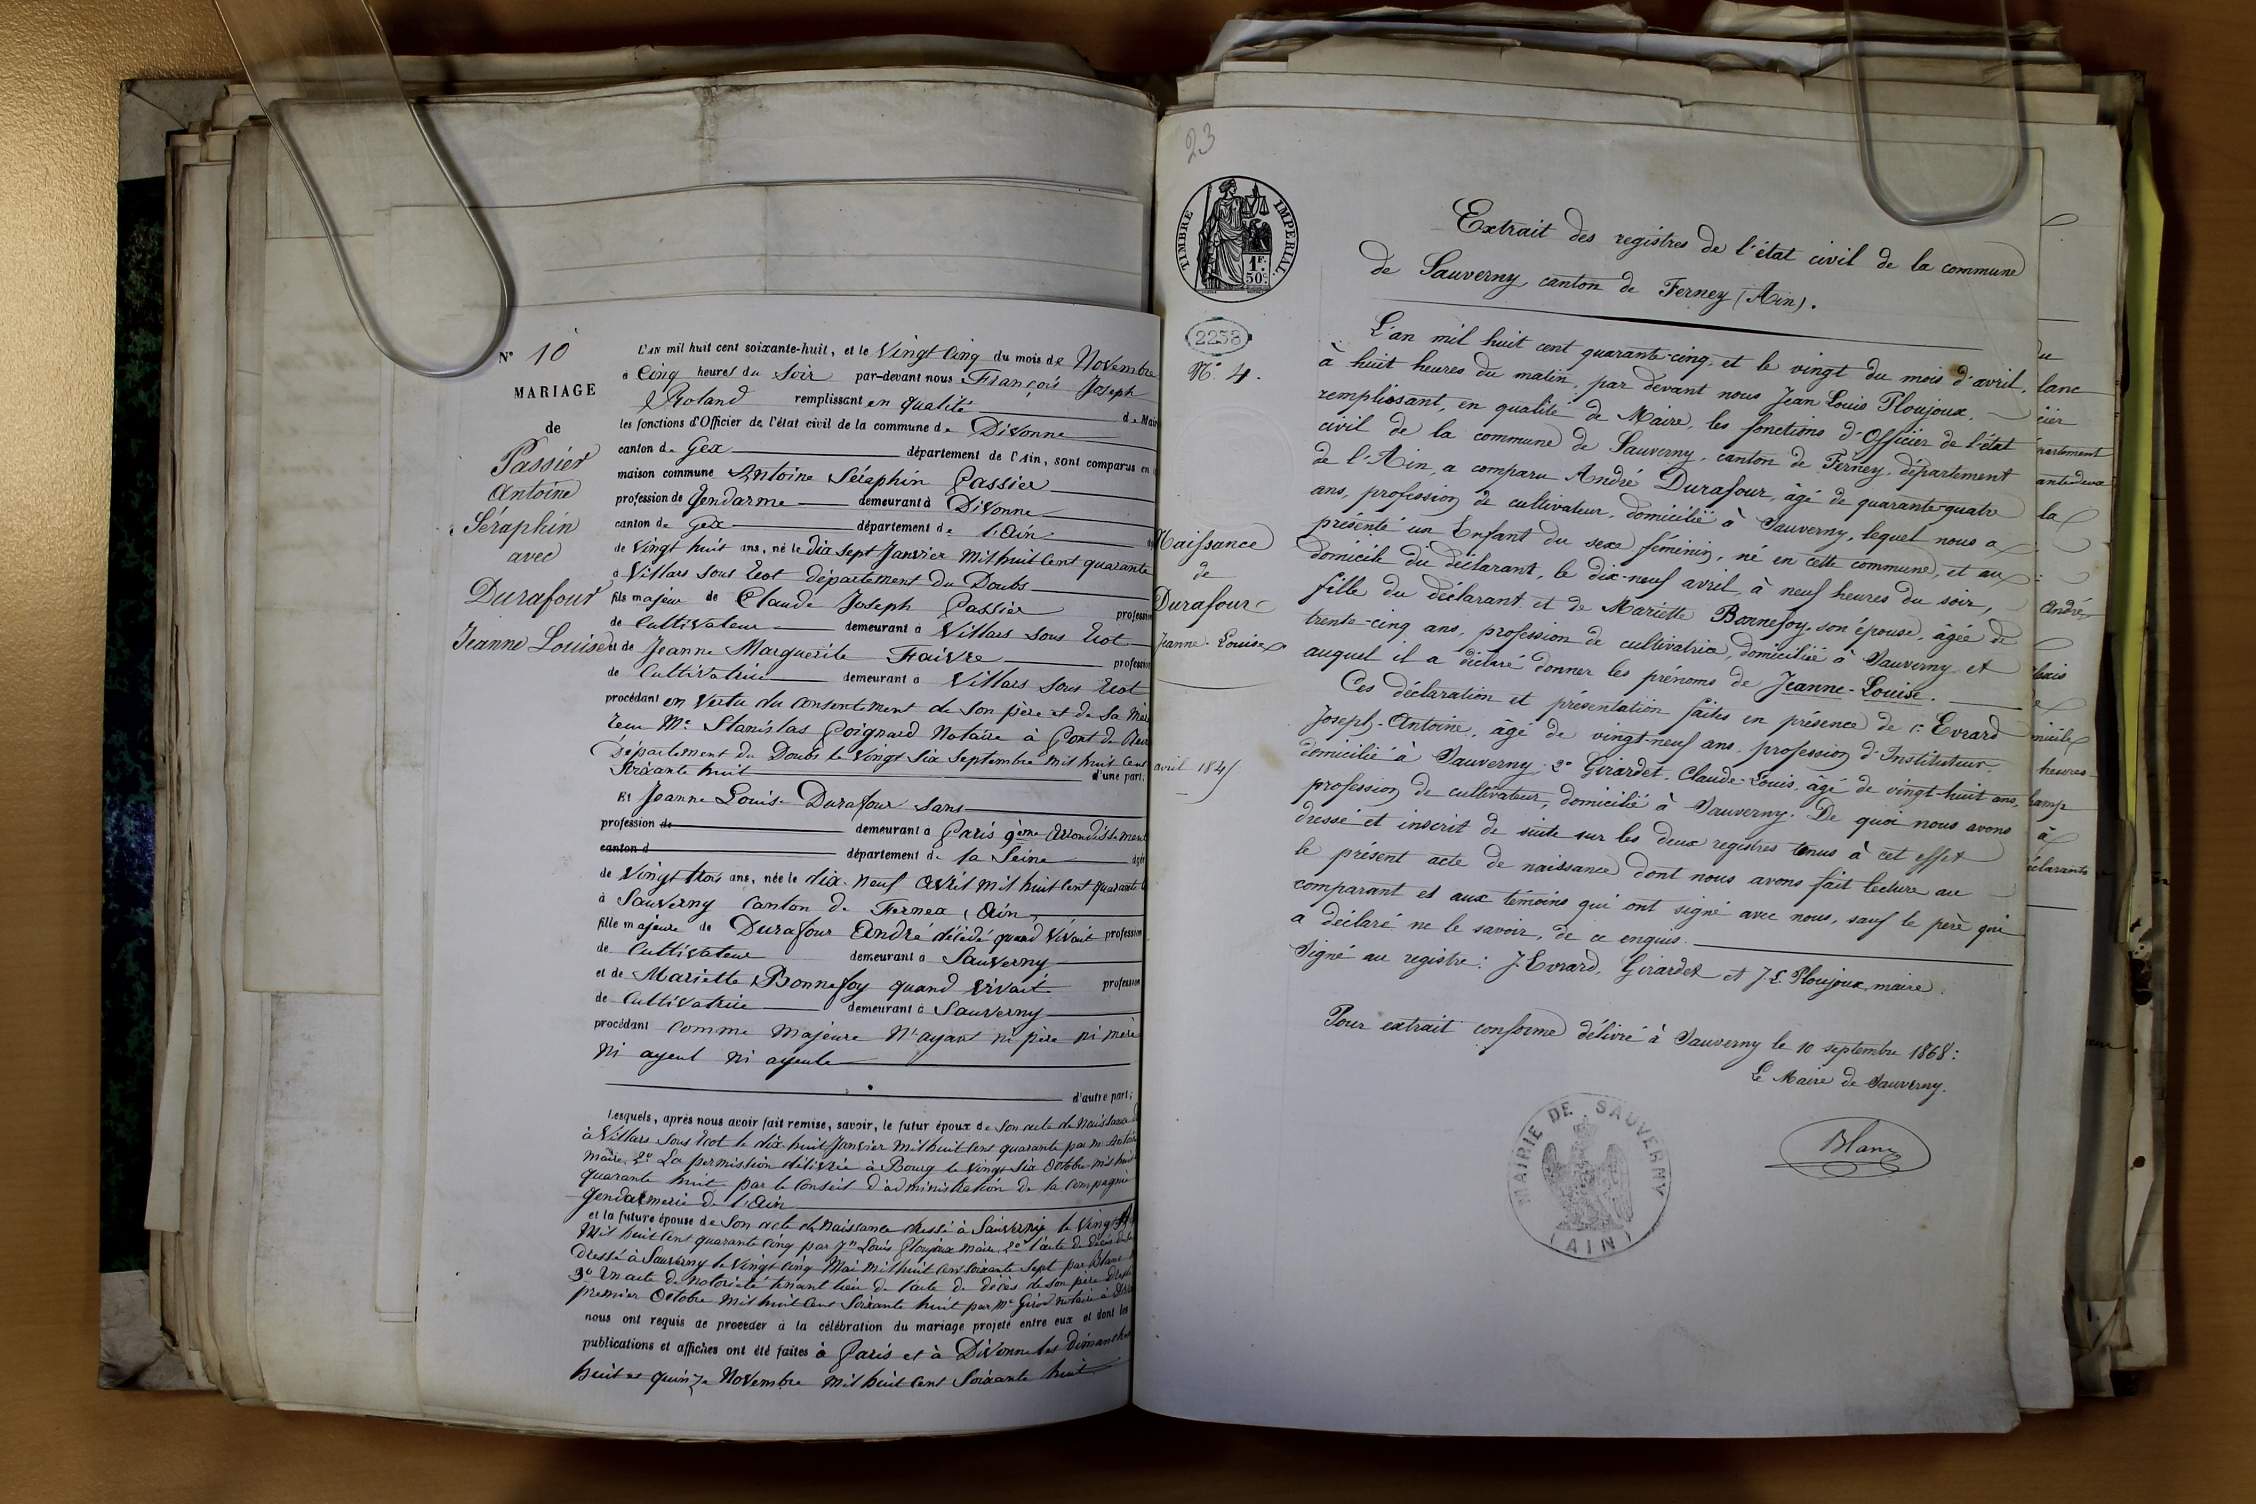 N° 10
MARIAGE
de
Passier
Antoine
Séraphin
avec
Durafour
Jeanne Louise
L'AN mil huit cent soixante-huit, et le Vingt Cinq du mois de Novembre
à Cinq heures du Soir par-devant nous François Joseph
Roland remplissant en qualité de Maire
les fonctions d'Officier de l'état civil de la commune de Divonne
canton de Gex département de l'Ain, sont comparus en
maison commune Antoine Séraphin Passier
profession de Gendarme demeurant à Divonne
canton de Gex département de l'Ain
de Vingt huit ans, né le Dix Sept Janvier Mil huit Cent quarante
à Villars Sous Ecot département du Doubs
fils majeur de Claude Joseph Passier profession
de Cultivateur demeurant à Villars Sous Ecot
et de Jeanne Marguerite Faivre profession
de Cultivatrice demeurant à Villars Sous Ecot
procédant en Vertu du consentement de Son père et de Sa Mère
reçu Me Stanislas Poignard Notaire à Pont de
Département du Doubs le Vingt Six Septembre Mil huit Cent
Soixante huit d'une part;
Et Jeanne Louise Durafour Sans
profession de demeurant à Paris 9ème Arrondissement
canton d département de la Seine âgée
de Vingt trois ans, née le dix-neuf Avril Mil huit Cent quarante
à Sauverny Canton de Fernex (Ain)
fille majeure de Durafour André décédé quand Vivait profession
de Cultivateur demeurant à Sauverny
et de Mariette Bonnefoy quand Vivait profession
de Cultivatrice demeurant à Sauverny
procédant Comme Majeure N'ayant ni père ni mère
Ni ayeul Ni ayeule
d'autre part;
Lesquels, après nous avoir fait remise, savoir, le futur époux de Son acte de Naissance
à Villars Sous Ecot le dix-huit Janvier Mil huit Cent quarante par Mr
Maire, 2° La permission délivrée à Bourg le Vingt Six Octobre Mil huit
quarante huit par le Conseil d'administration de la Compagnie
Gendarmerie de l'Ain
et la future épouse de Son acte de Naissance dressé à Sauverny le Vingt
Mil huit Cent quarante Cinq par Jn Louis Ploujoux Maire, 2° l'acte de décès
Dressé à Sauverny le Vingt Cinq Mai Mil huit Cent Soixante Sept par Blanc
3° Un acte de Notoriété tenant lieu de l'acte de décès de Son père
premier Octobre Mil huit Cent Soixante huit par Me Girod Notaire à
nous ont requis de procéder à la célébration du mariage projeté entre eux et dont les
publications et affiches ont été faites à Paris et à Divonne les dimanches
huit et quinze Novembre Mil huit Cent Soixante huit
23
TIMBRE IMPERIAL.
1F.
50c.
2258
N° 4.
Naissance
de
Durafour
Jeanne-Louise
avril 1845
Extrait des registres de l'état civil de la commune
de Sauverny canton de Ferney (Ain).
L'an mil huit cent quarante-cinq, et le vingt du mois d'avril,
à huit heures du matin, par devant nous Jean Louis Ploujoux,
remplissant, en qualité de Maire, les fonctions d'Officier de l'état
civil de la commune de Sauverny, canton de Ferney, département
de l'Ain, a comparu André Durafour, âgé de quarante-quatre
ans, profession de cultivateur, domicilié à Sauverny, lequel nous a
présenté un Enfant du sexe féminin, né en cette commune, et au
domicile du déclarant, le dix-neuf avril, à neuf heures du soir,
fille du déclarant et de Mariette Bonnefoy, son épouse, âgée de
trente-cinq ans, profession de cultivatrice, domiciliée à Sauverny et
auquel il a déclaré donner les prénoms de Jeanne-Louise.
Ces déclaration et présentation faites en présence de 1° Evrard
Joseph-Antoine, âgé de vingt-neuf ans, profession d'Instituteur,
domicilié à Sauverny; 2° Girardet, Claude-Louis, âgé de vingt-huit ans,
profession de cultivateur, domicilié à Sauverny. De quoi nous avons
dressé et inscrit de suite sur les deux registres tenus à cet effet
le présent acte de naissance dont nous avons fait lecture au
comparant et aux témoins qui ont signé avec nous, sauf le père qui
a déclaré ne le savoir, de ce enquis.
Signé au registre: J. Evrard, Girardet et J. L. Ploujoux, maire.
Pour extrait conforme délivré à Sauverny le 10 septembre 1868:
Le Maire de Sauverny.
Blanc
MAIRIE DE SAUVERNY
(AIN)
du
lanc
cier
partement
la
André
micile
heures
hamp
à
éclarants